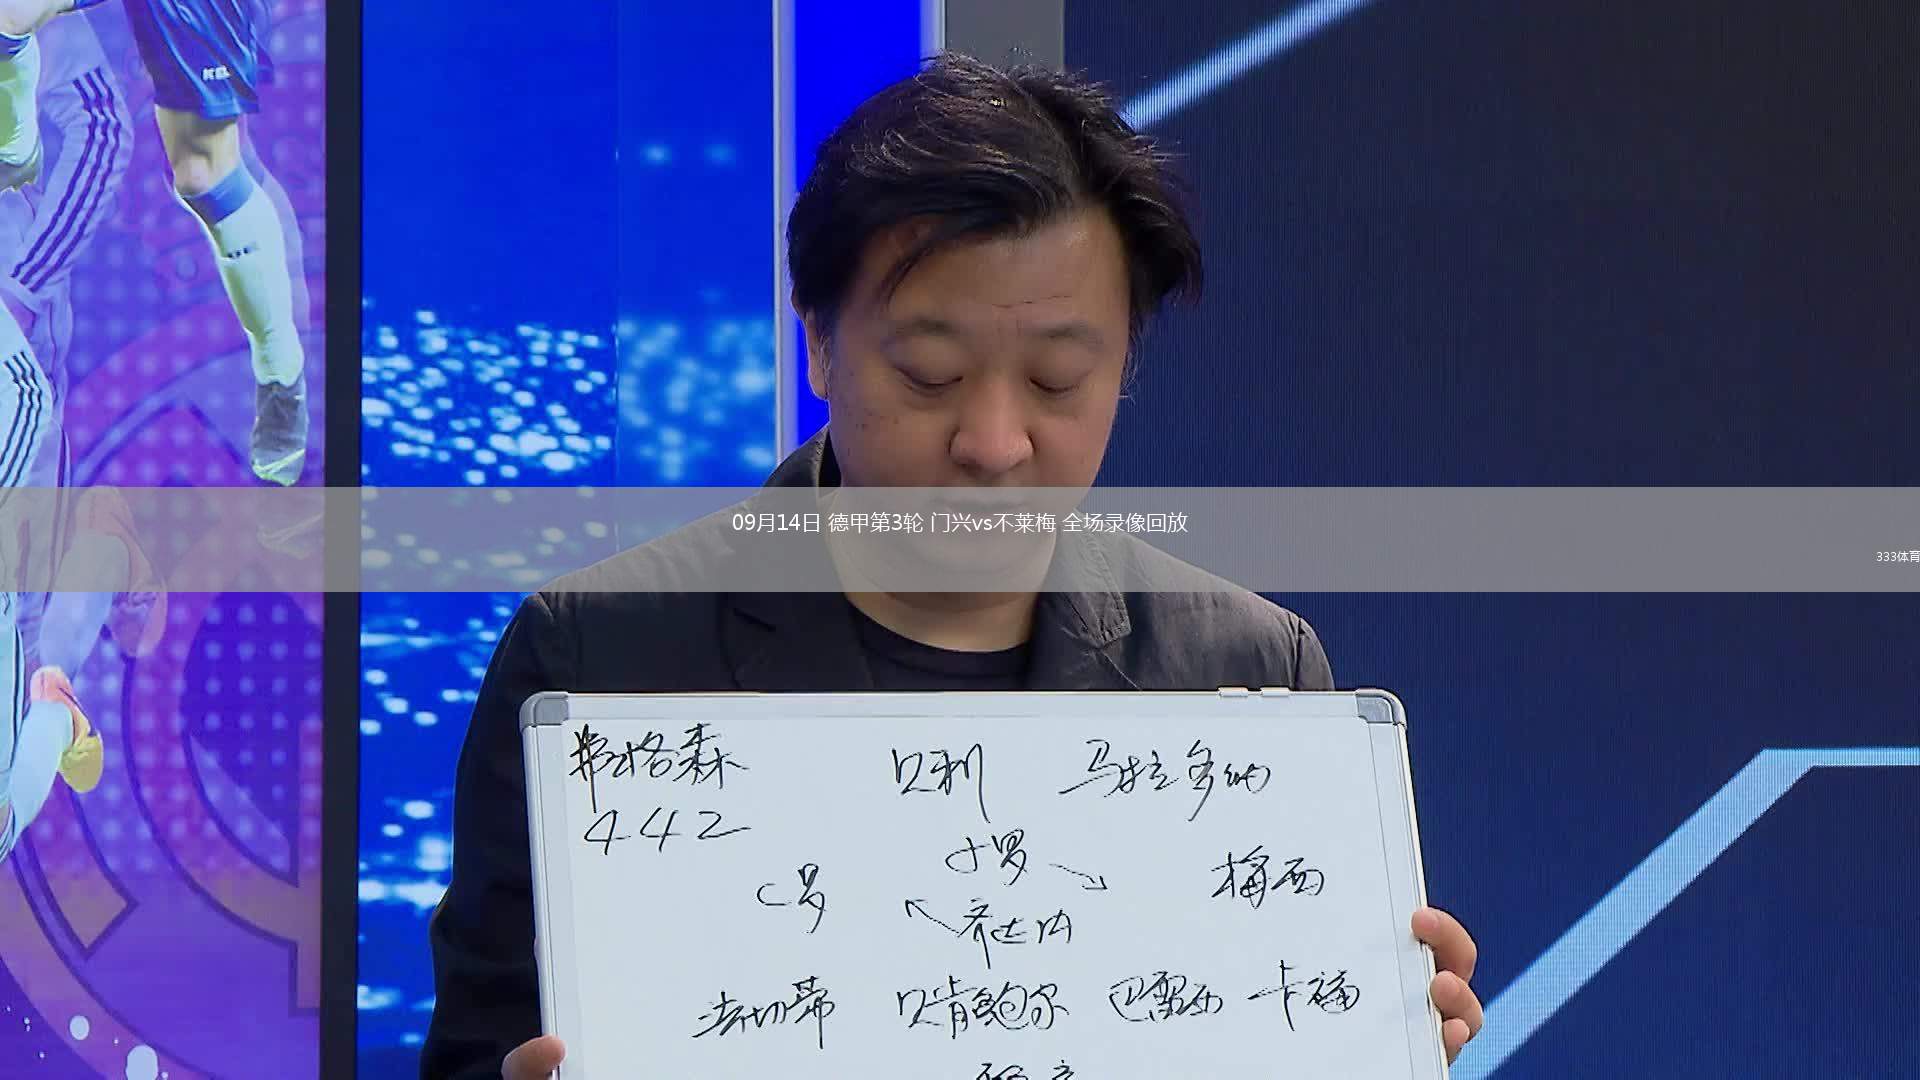 09月14日 德甲第3轮 门兴vs不莱梅 全场录像回放
333体育
弗格森 贝利 马拉多纳
442
小罗
C罗 梅西
齐达内
法切蒂 贝肯鲍尔 巴雷西 卡福